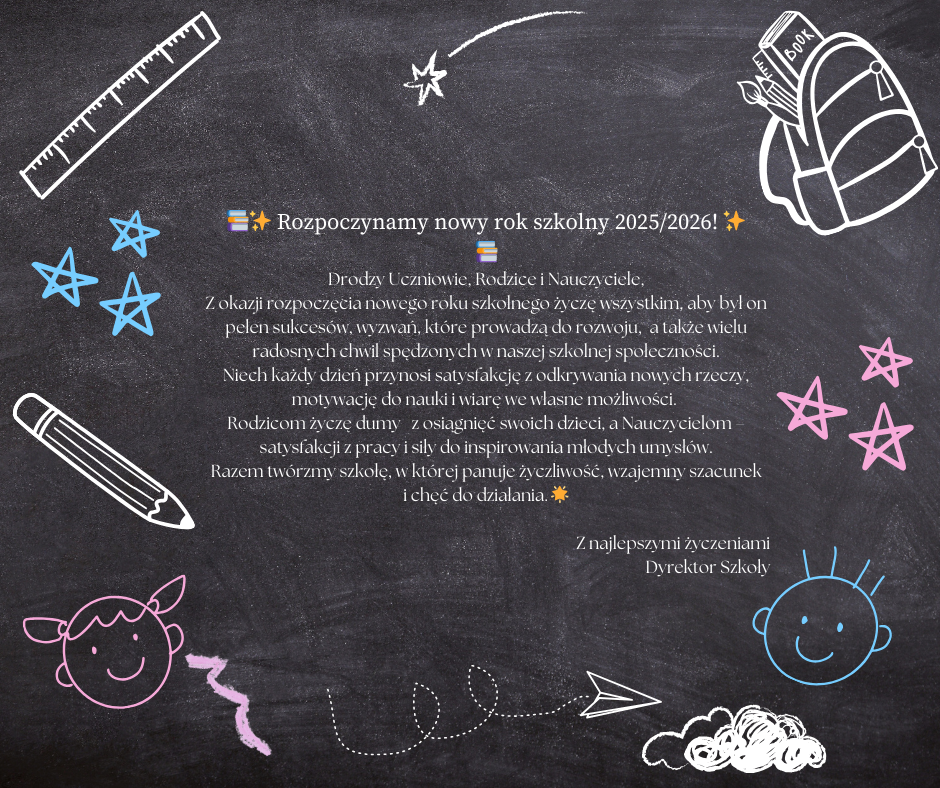 BOOK
📚✨ Rozpoczynamy nowy rok szkolny 2025/2026! ✨
📚
Drodzy Uczniowie, Rodzice i Nauczyciele,
Z okazji rozpoczęcia nowego roku szkolnego życzę wszystkim, aby był on
pełen sukcesów, wyzwań, które prowadzą do rozwoju, a także wielu
radosnych chwil spędzonych w naszej szkolnej społeczności.
Niech każdy dzień przynosi satysfakcję z odkrywania nowych rzeczy,
motywację do nauki i wiarę we własne możliwości.
Rodzicom życzę dumy z osiągnięć swoich dzieci, a Nauczycielom –
satysfakcji z pracy i siły do inspirowania młodych umysłów.
Razem twórzmy szkołę, w której panuje życzliwość, wzajemny szacunek
i chęć do działania. 🌟
Z najlepszymi życzeniami
Dyrektor Szkoły